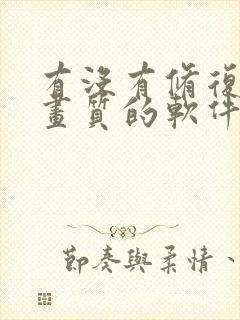 有沒有修復
畫質的軟件
節奏與柔情、